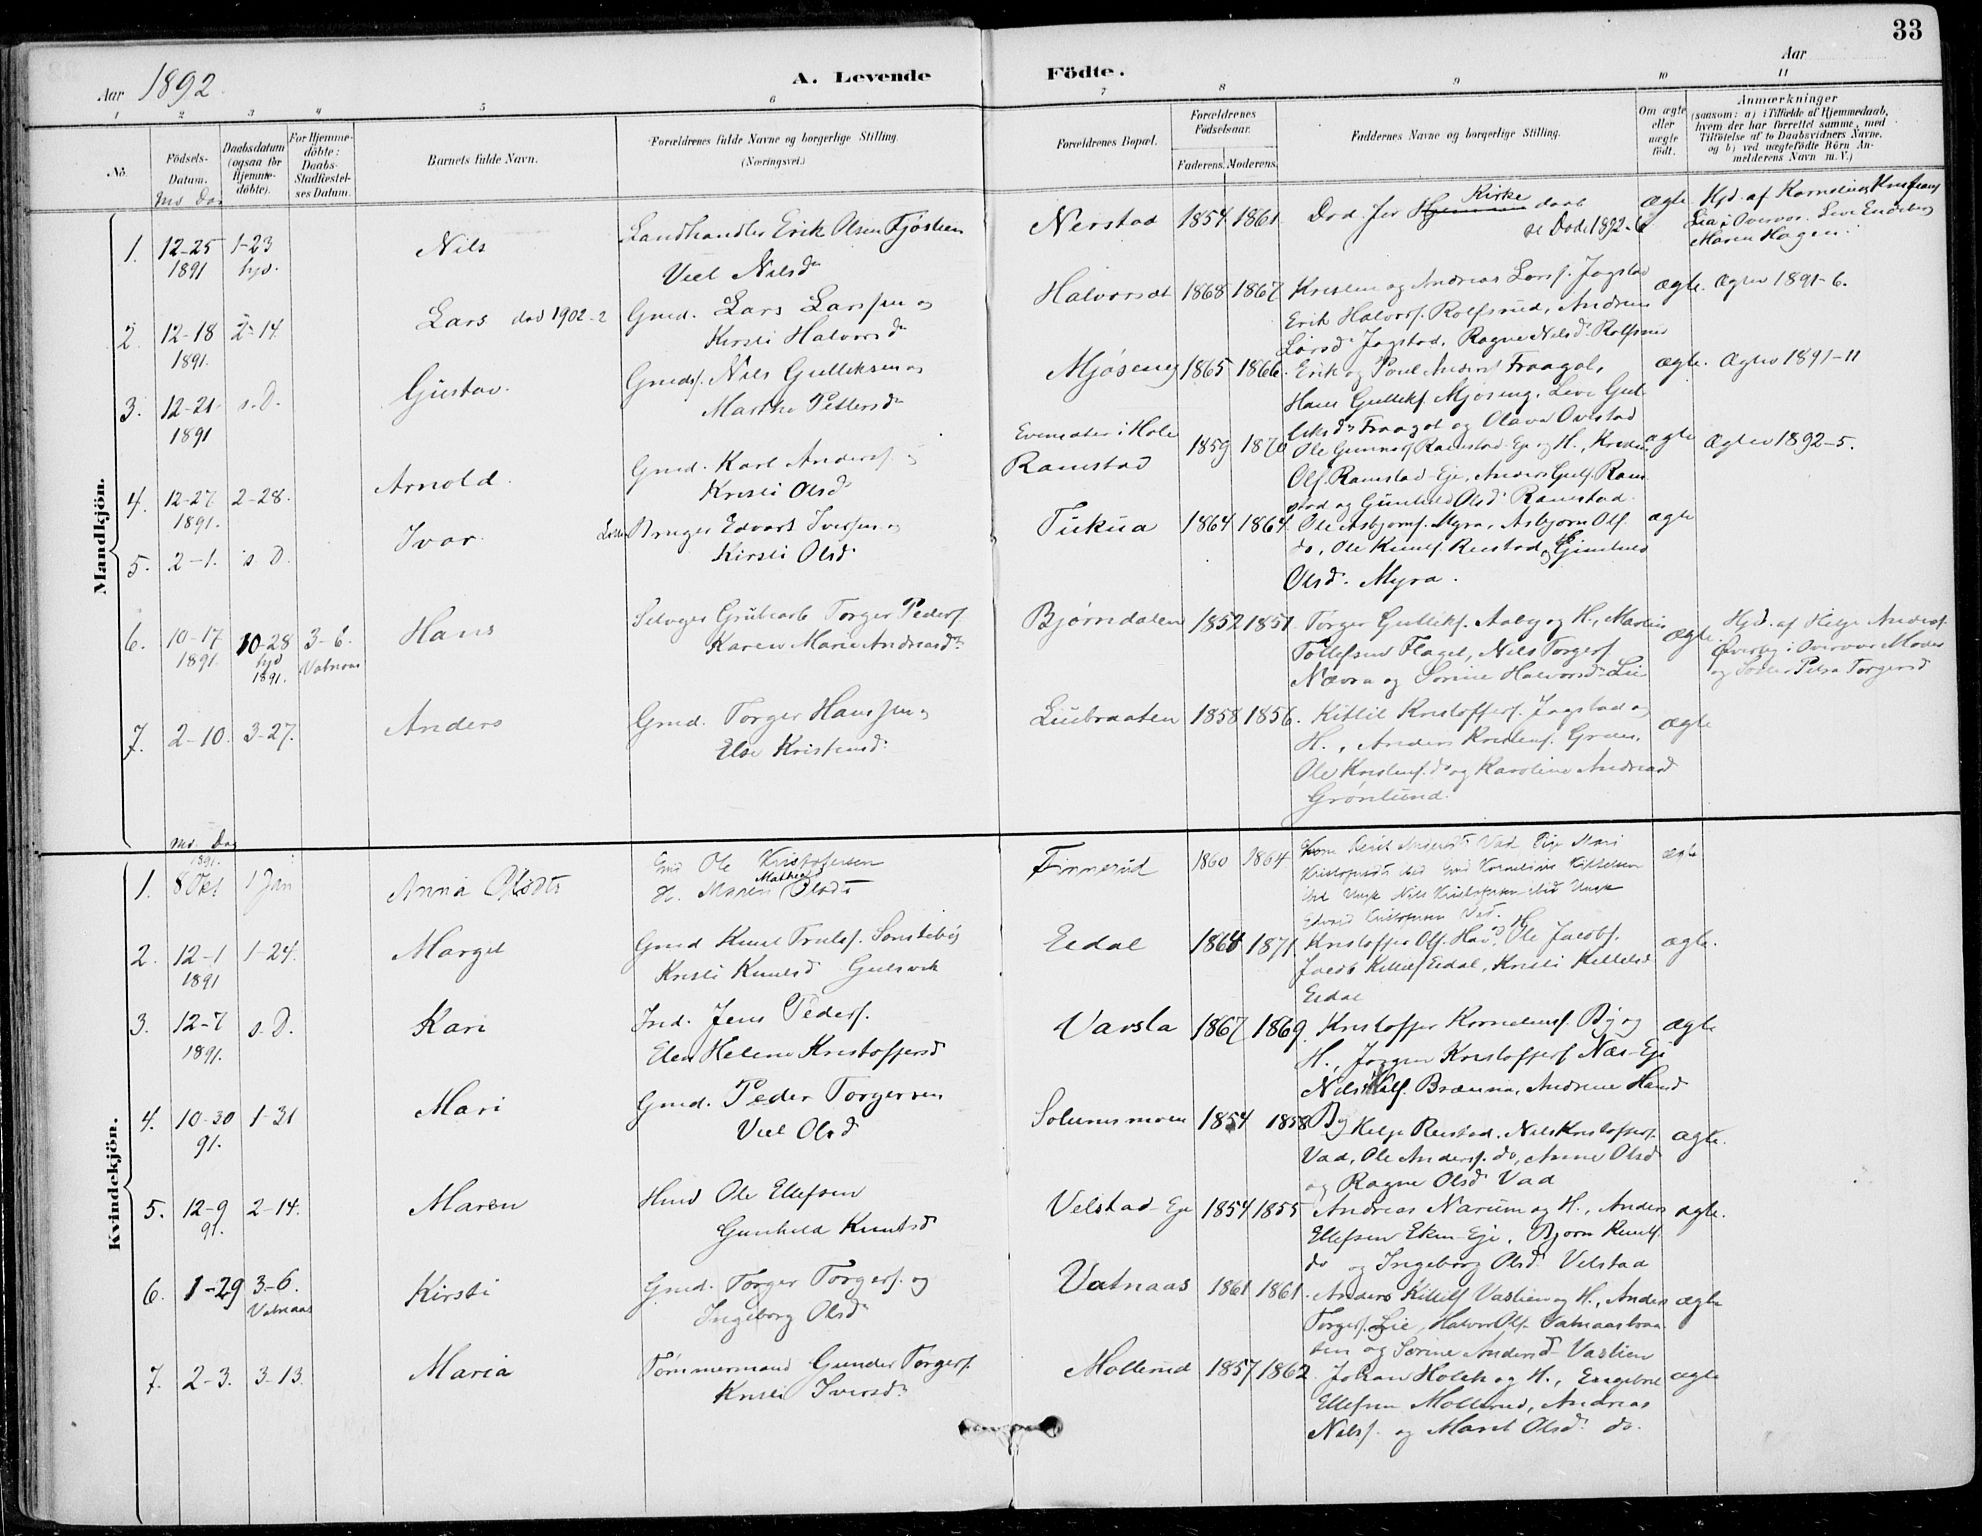 33
Aar 1892. A. Levende Födte. Aar
1 2 3 4 5 6 7 8 9 10 11
No.
Födsels-
Datum.
Mo Dag
Daabsdatum
(ogsaa for
Hjemme-
döbte).
For Hjemme-
döbte:
Daabs-
Stadfæstel-
ses Datum.
Barnets fulde Navn.
Forældrenes fulde Navne og borgerlige Stilling.
(Næringsvei.)
Forældrenes Bopæl.
Forældrenes
Födselsaar.
Faderens. Moderens.
Faddernes Navne og borgerlige Stilling.
Om ægte
eller
uægte
födt.
Anmærkninger
(saasom: a) i Tilfælde af Hjemmedaab,
hvem der har forrettet samme, med
Tilföielse af to Daabsvidners Navne,
og b) ved uægtefödte Börn An-
melderens Navn m. V.)
Mandkjön.
1. 12-25 1891 1-23 hjd. Nils
Landhandler Erik Olsen Fjøslien
Viel Nilsdr
Nerstad 1854 1861
Død før Kirke daab
se Døde 1892-6
ægte Hjd. af Kornelius Kristians
Lia i Overvor.
Maren Hagen.
2. 12-18 1891. 2-14. Lars død 1902-2
Gmd. Lars Larssen og
Kirsti Halvorsdr
Halvorsdt 1868 1867
Kristen og Andreas Larsf. Jogstad
Erik Halvorsf. Rolfsrud, Andrine
Larsdr Jogstad, Ragne Nilsdr Rolfsrud
ægte. Ægtev 1891-6.
3. 12-21. 1891 s.D. Gustav.
Gmdsf. Nils Gulliksen og
Marthe Pettersdr
Mjøseng 1865 1866.
Erik og Paul Andersf Fraagot,
Hans Gulliksf. Mjøseng, Live Gul-
liksdr Fraagot og Olava Ovestad
ægte. Ægtev 1891-11
4. 12-27 1891. 2-28. Arnold.
Gmd. Karl Andersf. og
Kristi Olsdr
Evensater i Hole
Ramstad 1859 1870
Ole Gunnarsf Ramstad-Eje og H., Kristen
Olsf. Ramstad-Eje, Anders Gulsf. Ram-
stad og Gunhild Olsdr Ramstad.
ægte Ægtev 1892-5.
5. 2-1. s.D. Ivar.
Bruger Edvart Iversen og
Kirsti Olsdr
Tukua 1864 1864.
Ole Asbjørnsf. Myra, Asbjørn Olsf.
do, Ole Knutsf. Rustad og Gunhild
Olsdr. Myra.
ægte
6. 10-17 1891. 10-28 hjd 1891. 3-6. Vatnaas Hans
Selveger Grubearb Torger Pedersf.
Karen Marie Andreasdr
Bjørndalen 1852 1851.
Torger Gulliksf. Aaby og H., Martin
Tollefsen Flagel, Nils Torgersf
Nævra og Sørine Halvorsdr Lie
ægte. Hjd. af Helge Andersf.
Øverby i Overvor Moder
og Søster Petra Torgersd
7. 2-10. 3-27. Anders
Gmd. Torger Hanssen og
Else Kristensdr
Liubraaten 1858 1856.
Kittil Kristoffersf. Jogstad og
H., Anders Kristensf. Grøn,
Ole Kristensf. do og Karoline Andreasd
Grønlund.
ægte
Kvindekjön.
Mo. Dag
1. 1891. 8 Okt 1 Jan Anna Olsdt
Gmd Ole Kristofersen
H. Maren Mathea Olsdt
Finnerud 1860 1864
Kristofersdt Gmd Kornelius Kittelsen
Ungk Nils Kristofersen Ungk
Edvard Kristofersen Vad.
ægte
2. 12-1 1891 1-24. Margit
Gmd Knut Trulsf. Sønstebø
Kristi Knutsd Gulsvik
Eidal 1864 1871.
Kristoffer Olsf. Ole Jacobsf.
Jacob Kittilsf Eidal, Kristi Kittelsd
Eidal
ægte.
3. 12-7 1891. s.D. Kari
Ind. Jens Pedersf.
Elen Helene Kristoffersd
Varsla 1867 1869.
Kristoffer Korneliusf. By og
H., Jørgen Kristoffersf Næs-Eje
Nils Brænna, Andrine Hansd
By
ægte
4. 10-30 91. 1-31 Mari
Gmd. Peder Torgersen
Viel Olsd
Solumsmoen 1854 1858
Helge Rustad, Nils Kristoffersf.
Vad, Ole Andersf. do, Anne Olsd
og Ragne Olsd Vad
ægte.
5. 12-9 91. 2-14. Maren
Hmd Ole Ellefsen
Gunhild Knutsd
Velstad-Eje 1854 1855
Andreas Narum og H., Anders
Ellefsen Eken-Eje, Bjørn Knutsf.
do og Ingeborg Olsd. Velstad
ægte.
6. 1-29 3-6. Vatnaas Kirsti
Gmd. Torger Torgersf. og
Ingeborg Olsd
Vatnaas 1861 1861.
Anders Kittilsf Vastien og H., Anders
Torgersf. Lie, Halvor Olsf. Vatnaasbraa-
ten og Sørine Andersd Vastien
ægte
7. 2-3. 3-13. Maria
Tømmermand Gunder Torgersf.
Kristi Iversdr
Møllerud 1857 1862.
Johan Holth og H., Engebret
Ellefsen Møllerud, Andreas
Nilsf. og Marit Olsd. do.
ægte